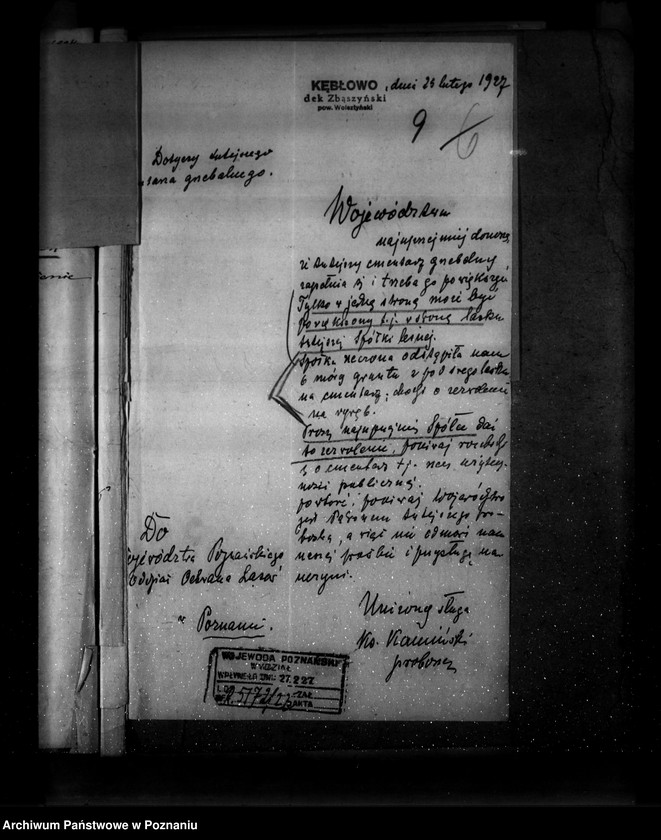 KĘBŁOWO, dnia 25 lutego 1927
dek Zbąszyński
pow. Wolsztyński
9 6
Dotyczy tutejszego
grzebalnego.
Województwu
najuprzejmiej donoszę,
iż tutejszy cmentarz grzebalny
zapełnia się i trzeba go powiększyć.
Tylko w jedną stronę może być
powiększony t.j. w stronę lasku
tutejszej Spółki leśnej.
Spółka rzeczona odstąpiła nam
6 mórg gruntu z pod swego lasku
na cmentarz; chodzi o zezwolenie
na wyręb.
Proszę najuprzejmiej Spółce dać
to zezwolenie, ponieważ rozchodzi
się o cmentarz t.j. rzecz
publicznej.
powtóre, ponieważ Województwo
jest Patronem tutejszego pro-
boszcza, a więc nie odmówi nam
naszej prośbie i przysługę na-
Uniżony sługa
Ks. Kamiński
proboszcz
Do
Województwa Poznańskiego
Ochrona Lasów
w Poznaniu.
WOJEWODA POZNAŃSKI
WYDZIAŁ
WPŁYNĘŁO DNIA 27.2.27
Archiwum Państwowe w Poznaniu